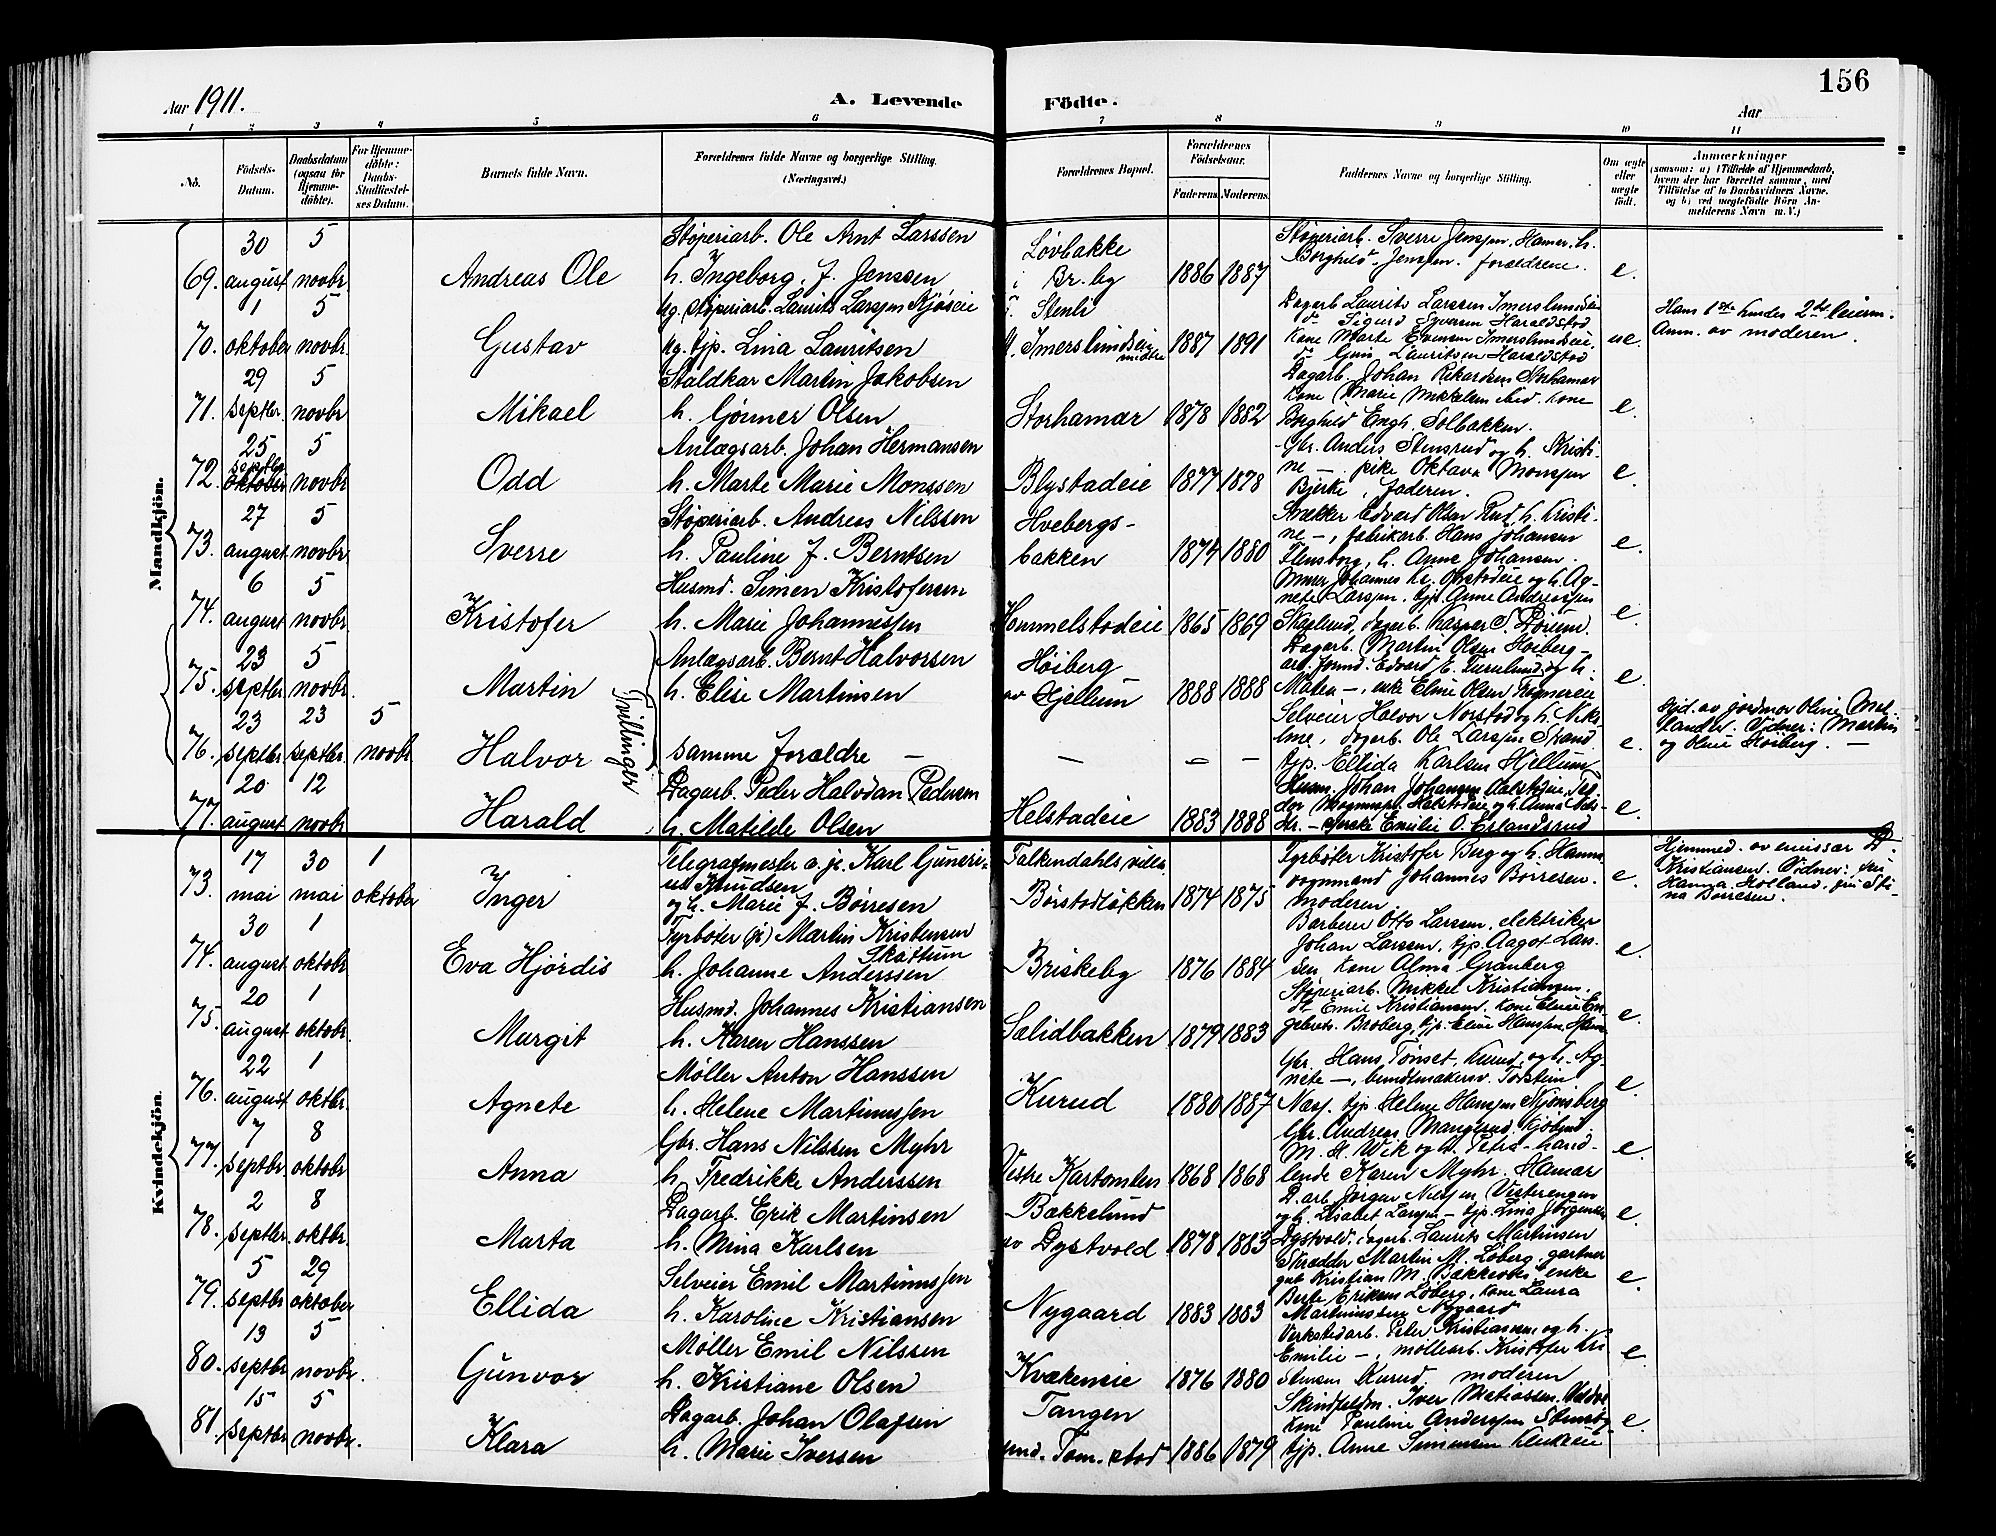 156
Aar 1911.
A. Levende Födte.
Aar
1 2 3 4 5 6 7 8 9 10 11
No.
Födsels-Datum.
Daabsdatum (ogsaa for Hjemme-döbte).
For Hjemme-döbte: Daabs-Stadfæstel-ses Datum.
Barnets fulde Navn.
Forældrenes fulde Navne og borgerlige Stilling. (Næringsvei.)
Forældrenes Bopæl.
Forældrenes Födselsaar.
Faderens. Moderens.
Faddernes Navne og borgerlige Stilling.
Om ægte eller uægte födt.
Anmærkninger (saasom: a) i Tilfælde af Hjemmedaab, hvem der har forrettet samme, med Tilföielse af to Daabsvidners Navne, og b) ved uægtefödte Börn Anmelderens Navn m. V.)
Mandkjön.
69. 30 august 5 novbr. Andreas Ole
Støperiarb. Ole Arnt Larssen
h. Ingeborg, f. Jenssen
Løvbakke
i Br. by
1886 1887
Støperiarb. Sverre Jenssen, Hamar, h.
Borghild Jenssen, forældrene.
e.
70. 1 oktober 5 novbr. Gustav
ug. Støperiarb. Laurits Larssen Kjøseie
ug. tjp. Lina Lauritsen
Stenli
Imerslundseie
1887 1891
Dagarb. Laurits Larssen Imerslundseie
do Sigurd Syversen Haraldstad
Kone Marte Evensen Imerslundseie.
Lauritsen Haraldstad
ue.
Hans 1ste hendes 2det leierm.
Anm. av moderen.
71. 29 septbr. 5 novbr Mikael
Staldkar Martin Jakobsen
h. Gørmer Olsen
Storhamar
1878 1882
Dagarb. Johan Rikardsen Storhamar
Kone Marie Mikkelsen ibid. Kone
Borghild Engh, Solbakken.
e.
72. 25 septbr oktober 5 novbr Odd
Anlægsarb. Johan Hermansen
h. Marte Marie Monssen
Blystadeie
1877 1878
Gbr. Anders Stensrud og h. Kristi-
ne —, pike Oktava Monssen
Bjerke, faderen.
e.
73. 27 august 5 novbr. Sverre
Støperiarb. Andreas Nilssen
h. Pauline f. Berntsen
Hvebergs-
bakken
1874 1880
Snekker Edvard Olsen Rud, h. Kristi-
ne —, fabrikarb. Hans Johansen
Flensborg, h. Anne Johansen.
e.
74. 6 august 5 novbr. Kristofer
Husmd. Simen Kristofersen
h. Marie Johannessen
Hommelstadeie
1865 1869
Murer Johannes og h. Ag-
nete Larssen, tjp. Anne Andreassen
Skaslund, dagarb. Kasper S.
e.
75. 23 septbr 5 novbr. Martin
Tvillinger
Anlægsarb. Bernt Halvorsen
h. Elise Martinsen
Høiberg
av Hjellum
1888 1888
Dagarb. Martin Olsen Høiberg—
arb. formd. Edvard E. og h.
Matea —, enke Eline Olsen
e.
76. 23 septbr 23 septbr. 5 novbr Halvor
samme forældre —
— — —
Selveier Halvor Norstad og h. Nik-
line, dagarb. Ole Larssen Strand
tjp. Ellida Karlsen Hjellum
e.
Hjd. av jordmor Oline Mel-
lander. Vidner: Martin
og Oline Høiberg. —
77. 20 august 12 novbr Harald
Dagarb. Peder Halvdan Pedersen
h. Matilde Olsen
Helstadeie
1883 1888
Husm. Johan Johansen
Helstadeie og h. Anna
Emilie O. Erlandsrud
e.
Kvindekjön.
73. 17 mai 30 mai 1 oktober Inger
Telegrafmester o. js. Karl Guneri-
us Knudsen
og h. Marie f. Børresen
Falkendahls villa
Børstadløkken
1874 1875
Fyrbøter Kristofer Berg og h. Hanna
vognmand Johannes Børresen.
moderen
e.
Hjemmed. av emissær D.
Kristiansen. Vidner: fru
Hanna Holland, fru Sti-
na Børresen.
74. 30 august 1 oktobr Eva Hjørdis
Fyrbøter (js) Martin Kristensen
Skattum
h. Johanne Anderssen
Briskeby
1876 1884
Barberer Otto Larssen, elektriker
Johan Larssen, tjp. Aagot Lars-
sen, kone Alma Granberg
e.
75. 20 august. 1 oktobr. Margit
Husmd. Johannes Kristiansen
h. Karen Hanssen
Sælidbakken
1879 1883
Støperiarb. Mikkel Kristiansen.
do Emil Kristiansen, Kone Eline En-
gebrets. Broberg, tjp. Eline Hanssen,
e.
76. 22 august. 1 oktbr. Agnete
Møller Anton Hanssen
h. Helene Martinussen
Kurud
1880 1887
Gbr. Hans Tønset, Kurud, og h. Ag-
nete —, Torstein
Næss. tjp. Helene Hanssen Stjønsberg
e.
77. 7 septbr. 8 oktobr Anna
Gbr. Hans Nilssen Myhr
h. Fredrikke Anderssen
Vestre Kartomten
1868 1868
Gbr. Andreas Mangerud,
M. H. Wik og h. Petra — hand-
lende Karen Myhr. Hamar
e.
78. 2 septbr. 8 oktbr. Marta
Dagarb. Erik Martinsen
h. Mina Karlsen
Bækkelund
av Dystvold
1878 1883
D. arb. Jørgen Vesterengen
og h. Lisabet Larssen — tjp. Lina Jørgensen
Dystvold. dagarb. Laurits Martinsen
e.
79. 5 septbr 29 oktober Ellida
Selveier Emil Martinussen
h. Karoline Kristiansen
Nygaard
1883 1883
Skrædder Martin M. Løberg, gartner
gut Kristian M. enke
Berte Eriksen Løberg, kone Laura
Martinussen Nygaard
e.
80. 13 septbr 5 novbr. Gunvor
Møller Emil Nilssen
h. Kristiane Olsen
Kvækeneie
1876 1880
Verkstedarb. Peter Kristiansen og h.
Emilie —, møllearb. Kristofer Kri-
stensen Kurud. moderen
e.
81. 15 septbr 5 novbr. Klara
Dagarb. Johan Olafsen
h. Marie Iversen
Tangen
und. Tom.stad
1886 1879
Skindfeldm. Iver Matiassen
Kone Pauline Anderssen
tjp. Anne Simensen
e.